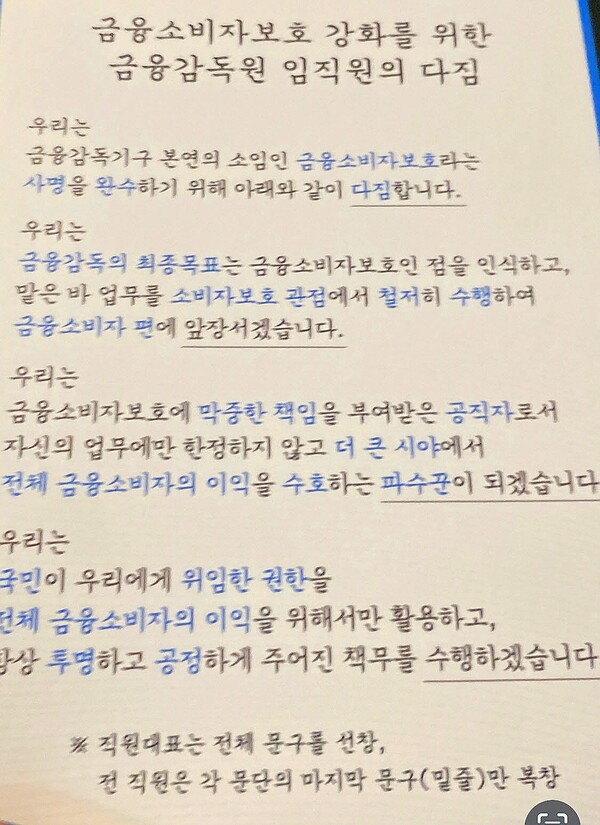 금융소비자보호 강화를 위한
금융감독원 임직원의 다짐
우리는
금융감독기구 본연의 소임인 금융소비자보호라는
사명을 완수하기 위해 아래와 같이 다짐합니다.
우리는
금융감독의 최종목표는 금융소비자보호인 점을 인식하고,
맡은 바 업무를 소비자보호 관점에서 철저히 수행하여
금융소비자 편에 앞장서겠습니다.
우리는
금융소비자보호에 막중한 책임을 부여받은 공직자로서
자신의 업무에만 한정하지 않고 더 큰 시야에서
전체 금융소비자의 이익을 수호하는 파수꾼이 되겠습니다
우리는
국민이 우리에게 위임한 권한을
전체 금융소비자의 이익을 위해서만 활용하고,
항상 투명하고 공정하게 주어진 책무를 수행하겠습니다
※ 직원대표는 전체 문구를 선창,
전 직원은 각 문단의 마지막 문구(밑줄)만 복창